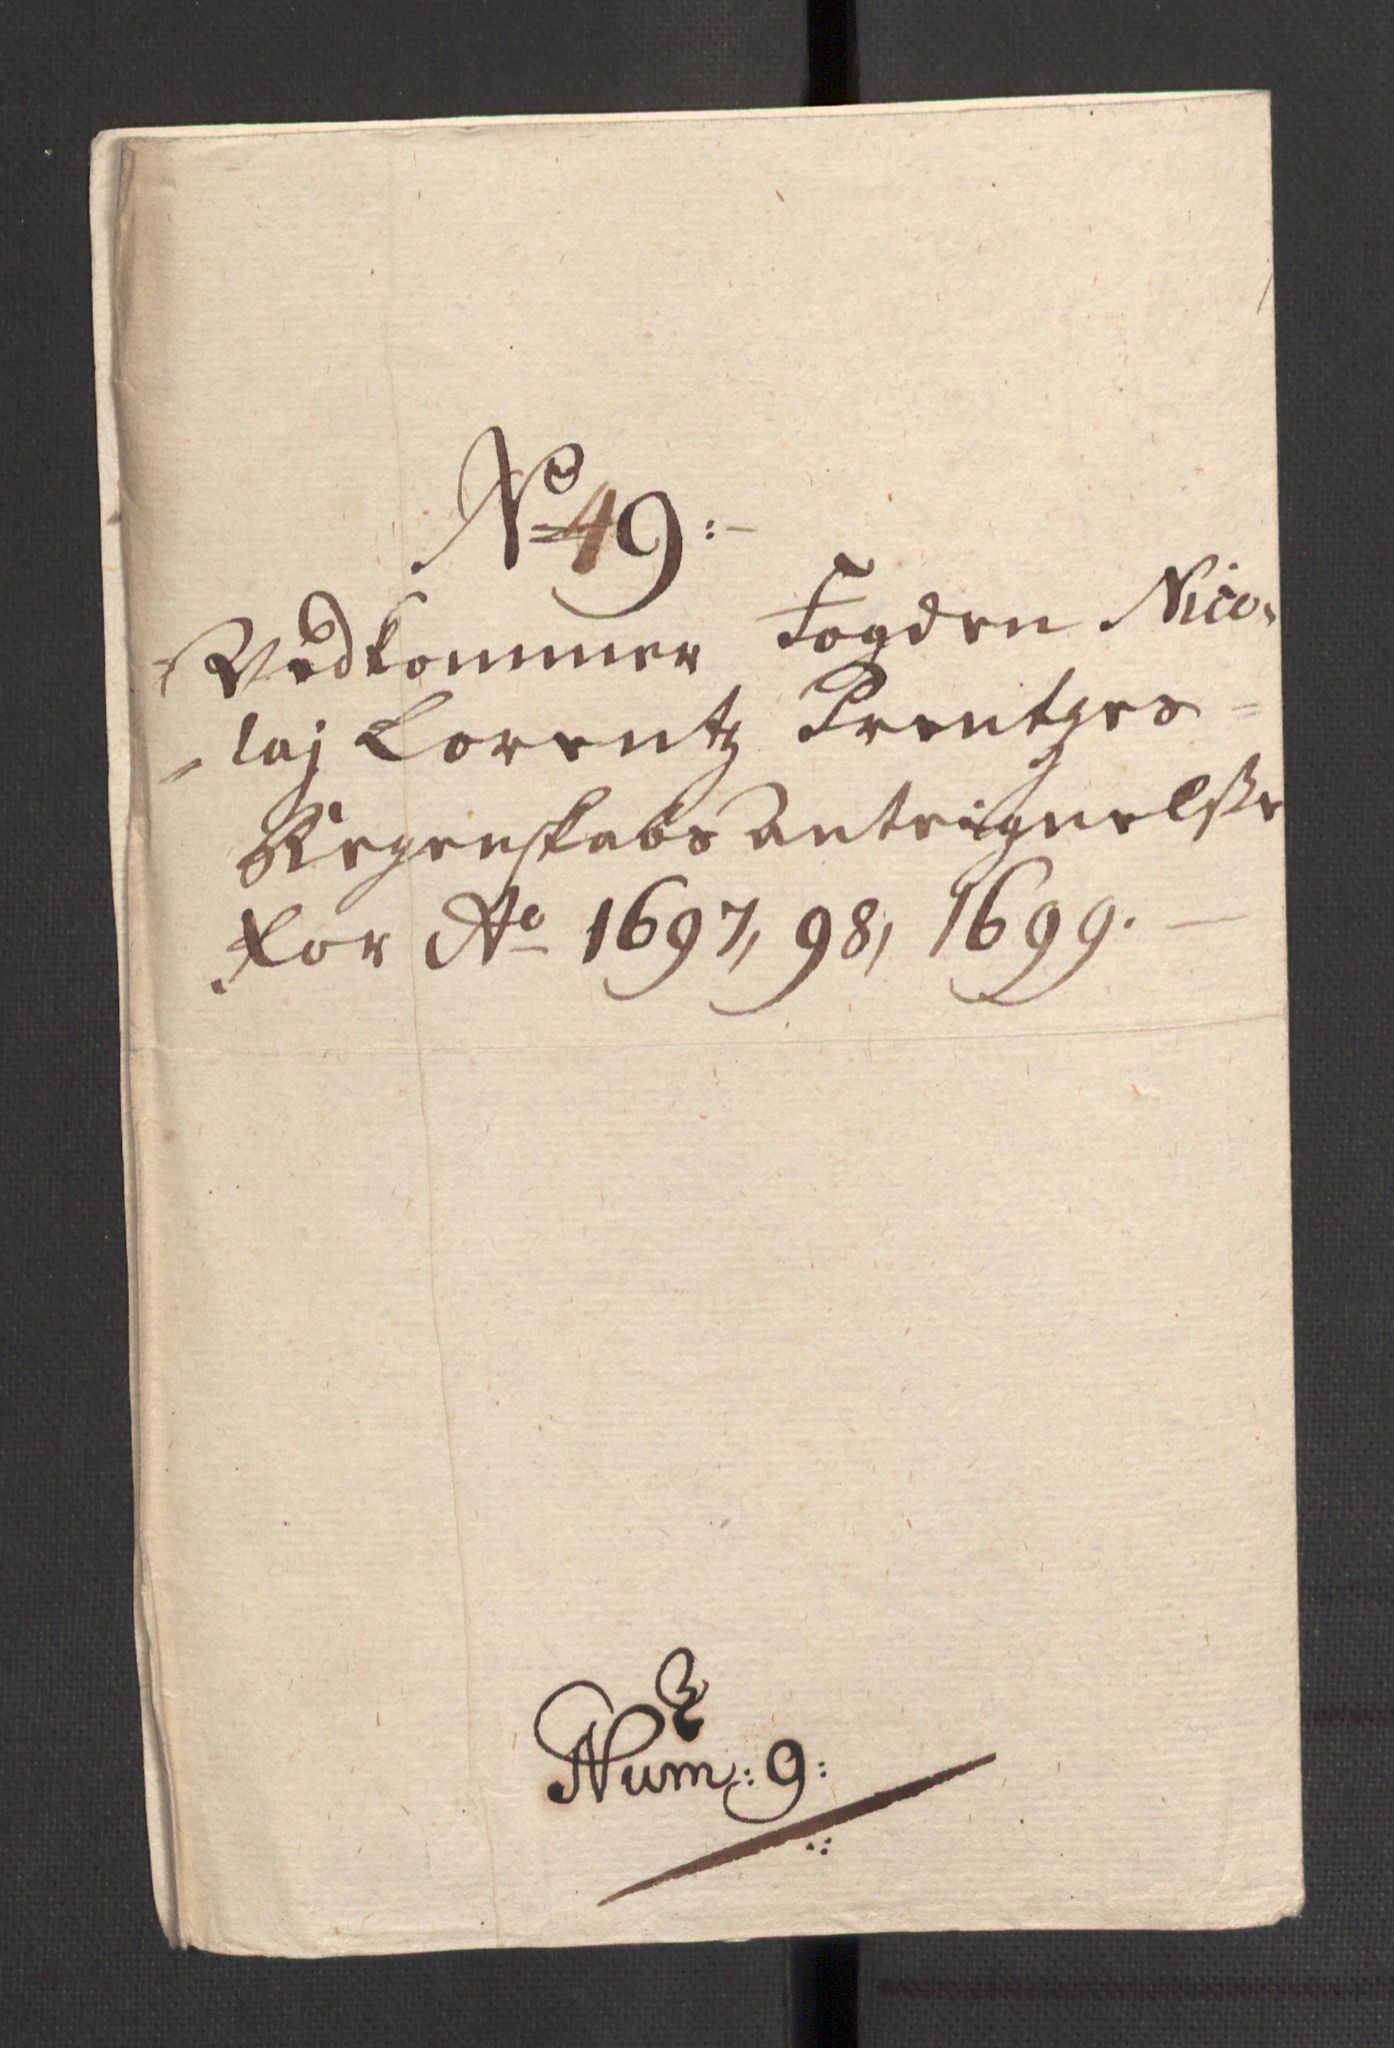 No 49:
Vedkommer Fogden Nico-
laj Lorentz Prentges
Regenskabs Anteignelsse
For Ao 1697, 98, 1699.
Num: 9: